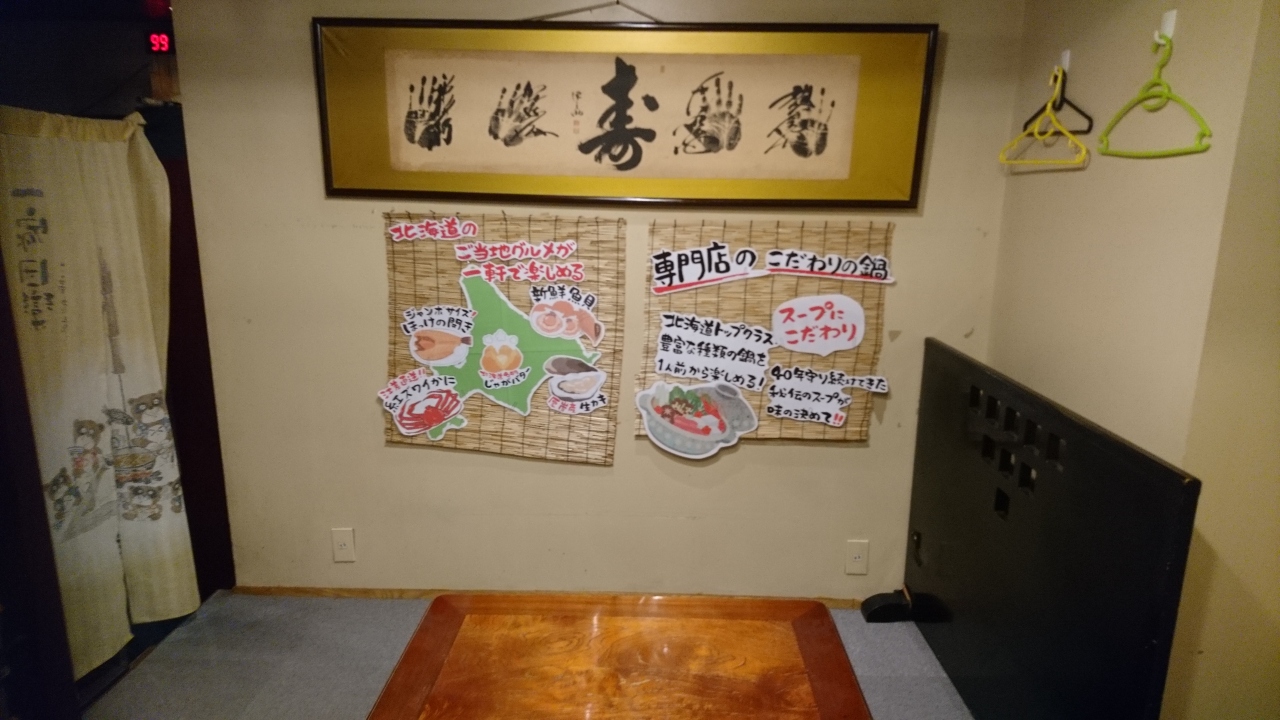 99
寿
北海道の
ご当地グルメが
一軒で楽しめる
新鮮魚貝
ジャンボサイズ!
ほっけの開き
じゃがバター
紅ズワイがに
生カキ
専門店のこだわりの鍋
スープに
こだわり
北海道トップクラス
豊富な種類の鍋を
1人前から楽しめる!
40年守り続けてきた
秘伝のスープが
味の決めて!!